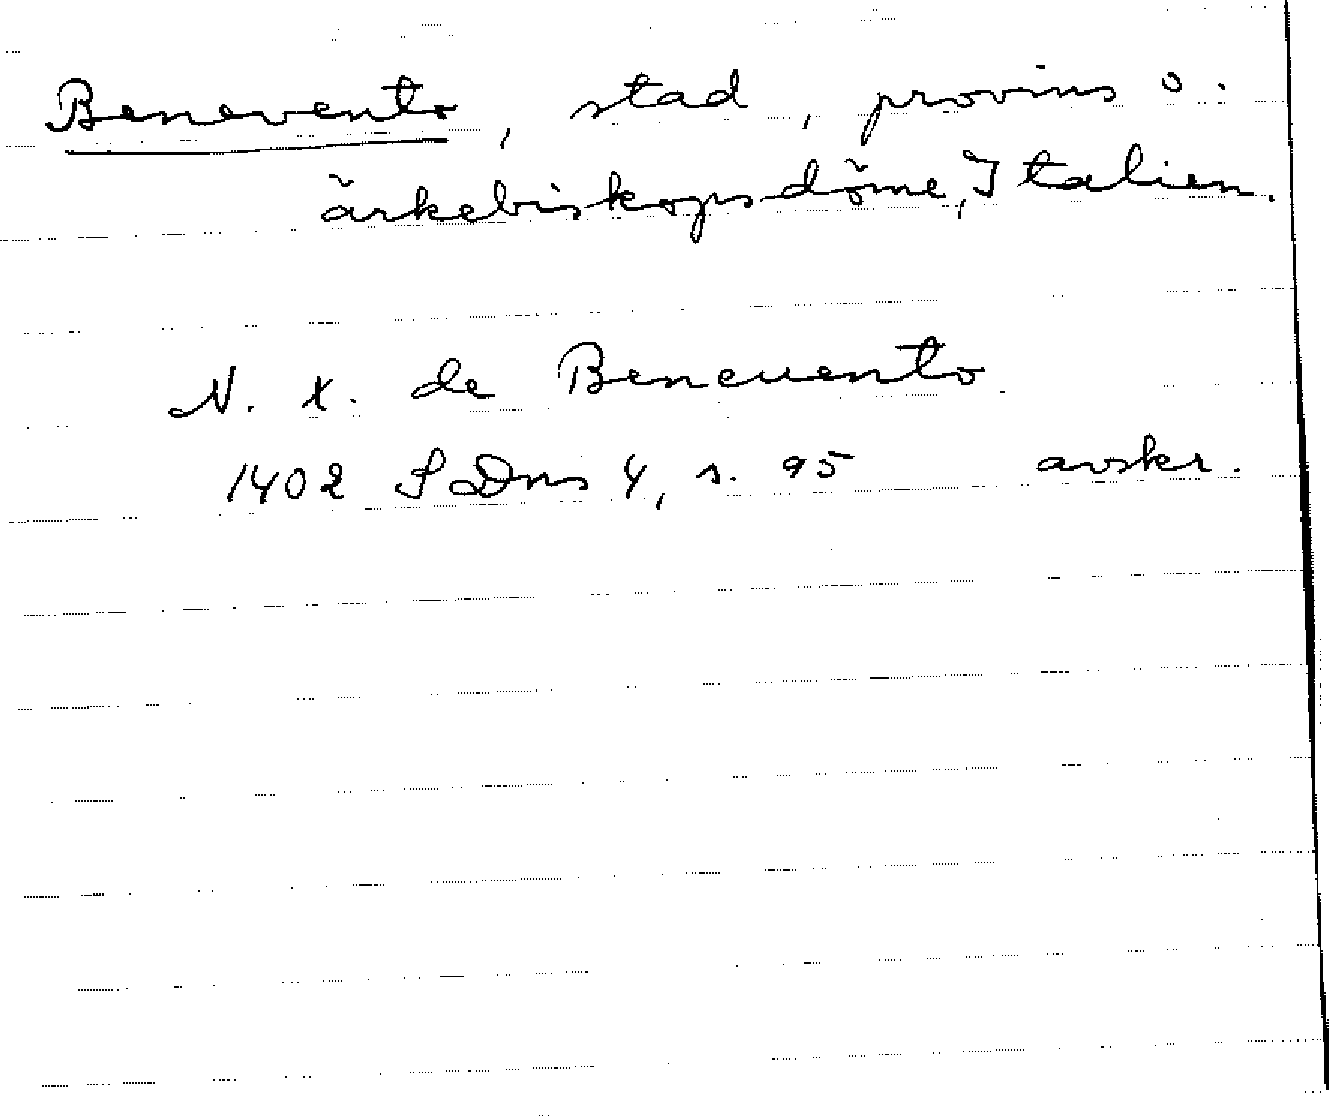 Benevento, stad, provins o.
ärkebiskopsdöme, Italien.
N. X. de Beneuento
1402 SDns 4, s. 95 avskr.